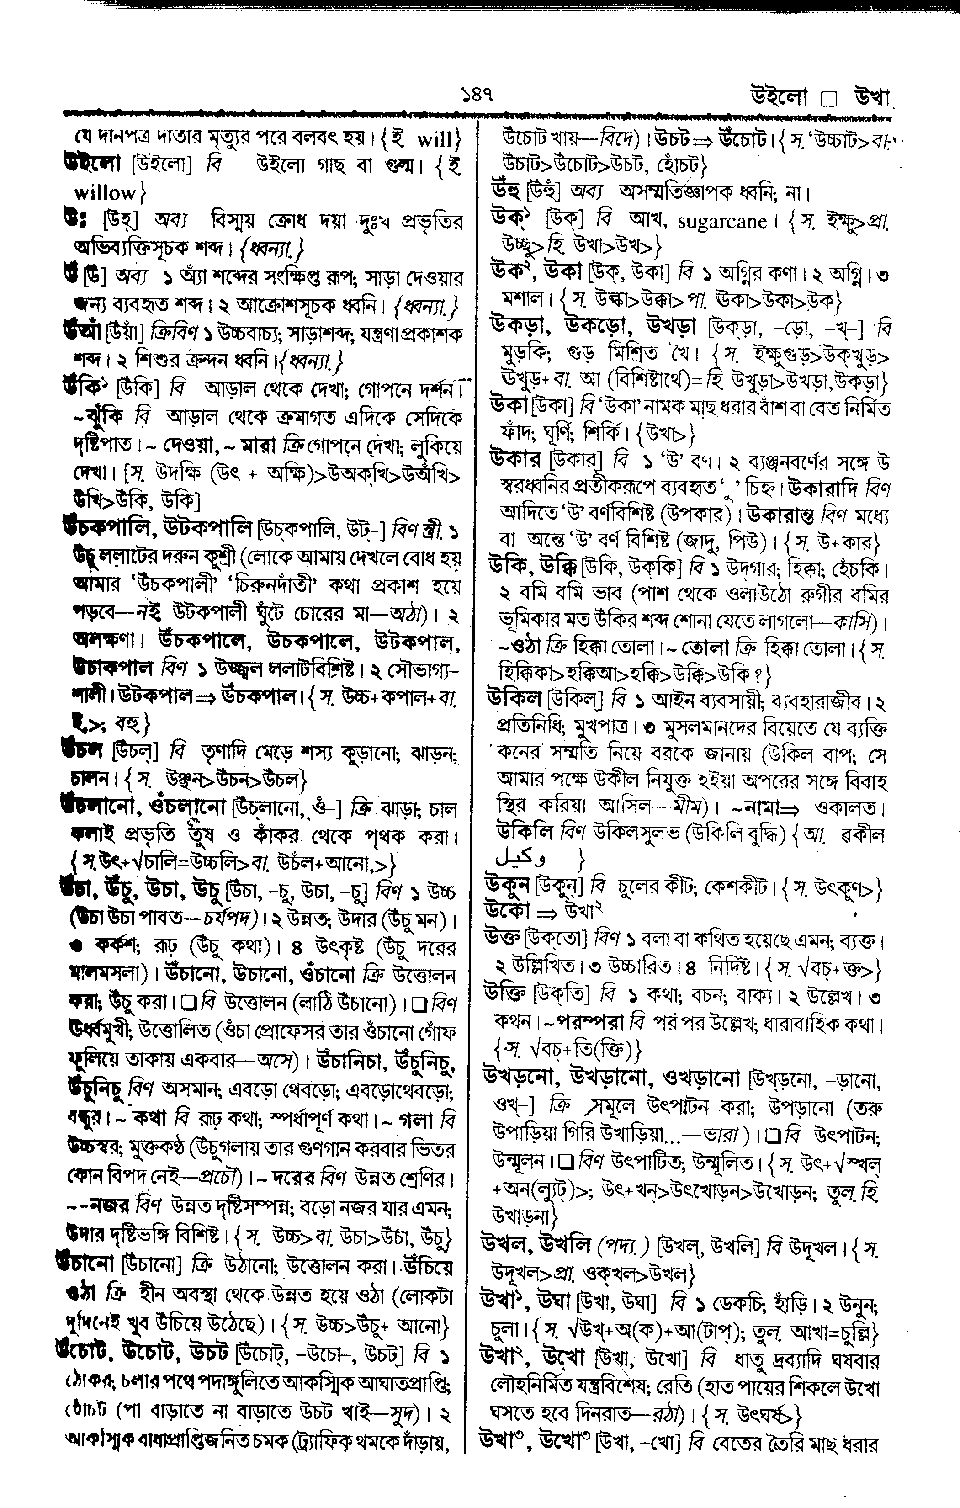 ১৪৭
উইলো □ উখা
যে দানপত্র দাতার মৃত্যুর পরে বলবৎ হয়। {ই will}
উইলো [উইলো] বি উইলো গাছ বা গুল্ম। {ই
willow}
উঃ [উহ্] অব্য বিস্ময় ক্রোধ দয়া দুঃখ প্রভৃতির
অভিব্যক্তিসূচক শব্দ। {ধ্বন্যা.}
উঁ [উঁ] অব্য ১ অ্যাঁ শব্দের সংক্ষিপ্ত রূপ; সাড়া দেওয়ার
জন্য ব্যবহৃত শব্দ। ২ আক্রোশসূচক ধ্বনি। {ধ্বন্যা.}
উঁআঁ [উঁয়াঁ] ক্রিবিণ ১ উচ্চবাচ্য; সাড়াশব্দ; যন্ত্রণা প্রকাশক
শব্দ। ২ শিশুর ক্রন্দন ধ্বনি। {ধ্বন্যা.}
উঁকি১ [উঁকি] বি আড়াল থেকে দেখা; গোপনে দর্শন।
~ঝুঁকি বি আড়াল থেকে ক্রমাগত এদিকে সেদিকে
দৃষ্টিপাত। ~ দেওয়া, ~ মারা ক্রি গোপনে দেখা; লুকিয়ে
দেখা। {স. উদক্ষি (উৎ + অক্ষি)>উঅক্‌খি>উঅঁখি>
উখি>উঁকি, উকি]
উঁচকপালি, উটকপালি [উঁচ্‌কপালি, উট্‌-] বিণ স্ত্রী. ১
উঁচু ললাটের দরুন কুশ্রী (লোকে আমায় দেখলে বোধ হয়
আমার ‘উঁচকপালী’ ‘চিরুনদাঁতী’ কথা প্রকাশ হয়ে
পড়বে—নই উটকপালী ঘুঁটে চোরের মা—অঠা)। ২
অলক্ষণা। উঁচকপালে, উচকপালে, উটকপাল,
উচাকপাল বিণ ১ উজ্জ্বল ললাটবিশিষ্ট। ২ সৌভাগ্য-
শালী। উটকপাল ⇒ উঁচকপাল। {স. উচ্চ+কপাল+বা.
ই,>; বহু}
উঁচল [উঁচল্] বি তৃণাদি মেড়ে শস্য কুড়ানো; ঝাড়ন;
চালন। {স. উঞ্ছন>উঁচন>উঁচল}
উঁচলানো, ওঁচলানো [উঁচ্‌লানো, ওঁ-] ক্রি ঝাড়া; চাল
কলাই প্রভৃতি তুঁষ ও কাঁকর থেকে পৃথক করা।
{স.উৎ+√চালি=উচ্চলি>বা. উচঁল+আনো,>}
উঁচা, উঁচু, উচা, উচু [উঁচা, -চু, উচা, -চু] বিণ ১ উচ্চ
(উঁচা উঁচা পাবত—চর্যপদ)। ২ উন্নত; উদার (উঁচু মন)।
৩ কর্কশ; রূঢ় (উঁচু কথা)। ৪ উৎকৃষ্ট (উঁচু দরের
মালমসলা)। উঁচানো, উচানো, ওঁচানো ক্রি উত্তোলন
করা; উঁচু করা। □ বি উত্তোলন (লাঠি উঁচানো)। □ বিণ
উর্ধ্বমুখী; উত্তোলিত (ওঁচা প্রোফেসর তার ওঁচানো গোঁফ
ফুলিয়ে তাকায় একবার—অসে)। উঁচানিচা, উঁচুনিচু,
উঁচুনিচু বিণ অসমান; এবড়ো থেবড়ো; এবড়োথেবড়ো;
বন্ধুর। ~ কথা বি রূঢ় কথা; স্পর্ধাপূর্ণ কথা। ~ গলা বি
উচ্চস্বর; মুক্তকণ্ঠ (উঁচুগলায় তার গুণগান করবার ভিতর
কোন বিপদ নেই—প্রচৌ)। ~ দরের বিণ উন্নত শ্রেণির।
~-নজর বিণ উন্নত দৃষ্টিসম্পন্ন; বড়ো নজর যার এমন;
উদার দৃষ্টিভঙ্গি বিশিষ্ট। {স. উচ্চ>বা. উচা>উঁচা, উঁচু}
উঁচানো [উঁচানো] ক্রি উঠানো; উত্তোলন করা। উঁচিয়ে
ওঠা ক্রি হীন অবস্থা থেকে উন্নত হয়ে ওঠা (লোকটা
দুদিনেই খুব উঁচিয়ে উঠেছে)। {স. উচ্চ>উঁচু+ আনো}
উঁচোট, উচোট, উচট [উঁচোট্, -উচো-, উচট্] বি ১
ঠোকর; চলার পথে পদাঙ্গুলিতে আকস্মিক আঘাতপ্রাপ্তি;
হোঁচট (পা বাড়াতে না বাড়াতে উচট খাই—সুদ)। ২
আকস্মিক বাধাপ্রাপ্তিজনিত চমক (ট্র্যাফিক থমকে দাঁড়ায়,
উঁচোট খায়—বিদে)। উচট ⇒ উঁচোট। {স. ‘উচ্চাট>বা.
উচাট>উঁচোট>উচট, হোঁচট}
উঁহু [উঁহুঁ] অব্য অসম্মতিজ্ঞাপক ধ্বনি; না।
উক১ [উক্] বি আখ, sugarcane। {স. ইক্ষু>প্রা.
উচ্ছু>হি উখা>উখ>}
উক২, উকা [উক্, উকা] বি ১ অগ্নির কণা। ২ অগ্নি। ৩
মশাল। {স. উল্কা>উক্কা>পা. ঊকা>উকা>উক}
উকড়া, উকড়ো, উখড়া [উক্‌ড়া, -ড়ো, -খ্-] বি
মুড়কি; গুড় মিশ্রিত খৈ। {স. ইক্ষুগুড়>উক্‌খুড়>
ঊখুড়+বা. আ (বিশিষ্টার্থে)=হি উখুড়া>উখড়া,উকড়া}
উকা [উকা] বি ‘উকা’ নামক মাছ ধরার বাঁশ বা বেত নির্মিত
ফাঁদ; ঘূর্ণি; শির্কি। {উখা>}
উকার [উকার্] বি ১ ‘উ’ বর্ণ। ২ ব্যঞ্জনবর্ণের সঙ্গে উ
স্বরধ্বনির প্রতীকরূপে ব্যবহৃত ‘ু’ চিহ্ন। উকারাদি বিণ
আদিতে ‘উ’ বর্ণবিশিষ্ট (উপকার)। উকারান্ত বিণ মধ্যে
বা অন্তে ‘উ’ বর্ণ বিশিষ্ট (জাদু, পিউ)। {স. উ+কার}
উকি, উক্কি [উকি, উক্‌কি] বি ১ উদ্গার; হিক্কা; হেঁচকি।
২ বমি বমি ভাব (পাশ থেকে ওলাউঠো রুগীর বমির
ভূমিকার মত উঁকির শব্দ শোনা যেতে লাগলো—কাসি)।
~ওঠা ক্রি হিক্কা তোলা। ~ তোলা ক্রি হিক্কা তোলা। {স.
হিক্কিকা>হক্কিআ>হক্কি>উক্কি>উকি ?}
উকিল [উকিল্] বি ১ আইন ব্যবসায়ী; ব্যবহারাজীব। ২
প্রতিনিধি; মুখপাত্র। ৩ মুসলমানদের বিয়েতে যে ব্যক্তি
কনের সম্মতি নিয়ে বরকে জানায় (উকিল বাপ; সে
আমার পক্ষে উকীল নিযুক্ত হইয়া অপরের সঙ্গে বিবাহ
স্থির করিয়া আসিল—মীম)। ~নামা ⇒ ওকালত।
উকিলি বিণ উকিলসুলভ (উকিলি বুদ্ধি) {আ. ৱকীল
وكيل }
উকুন [উকুন্] বি চুলের কীট; কেশকীট। {স. উৎকূণ>}
উকো ⇒ উখা২
উক্ত [উক্‌তো] বিণ ১ বলা বা কথিত হয়েছে এমন; ব্যক্ত।
২ উল্লিখিত। ৩ উচ্চারিত। ৪ নির্দিষ্ট। {স. √বচ্+ক্ত>}
উক্তি [উক্‌তি] বি ১ কথা; বচন; বাক্য। ২ উল্লেখ। ৩
কথন। ~পরম্পরা বি পর পর উল্লেখ; ধারাবাহিক কথা।
{স. √বচ্+তি(ক্তি)}
উখড়নো, উখড়ানো, ওখড়ানো [উখ্‌ড়নো, -ড়ানো,
ওখ্-] ক্রি সমূলে উৎপাটন করা; উপড়ানো (তরু
উপাড়িয়া গিরি উখাড়িয়া...—ভারা)। □ বি উৎপাটন;
উন্মূলন। □ বিণ উৎপাটিত; উন্মূলিত। {স. উৎ+√স্খল্
+অন(ল্যুট)>; উৎ+খন্>উৎখোড়ন>উখোড়ন; তুল. হি
উখাড়না}
উখল, উখলি (পদ্য.) [উখল্, উখলি] বি উদূখল। {স.
উদূখল>প্রা. ওক্‌খল>উখল}
উখা১, উঘা [উখা, উঘা] বি ১ ডেকচি; হাঁড়ি। ২ উনুন;
চুলা। {স. √উখ্+অ(ক)+আ(টাপ্); তুল. আখা=চুল্লি}
উখা২, উখো [উখা, উখো] বি ধাতু দ্রব্যাদি ঘষবার
লৌহনির্মিত যন্ত্রবিশেষ; রেতি (হাত পায়ের শিকলে উখো
ঘসতে হবে দিনরাত—রঠা)। {স. উৎঘর্ষ>}
উখা৩, উখো৩ [উখা, -খো] বি বেতের তৈরি মাছ ধরার